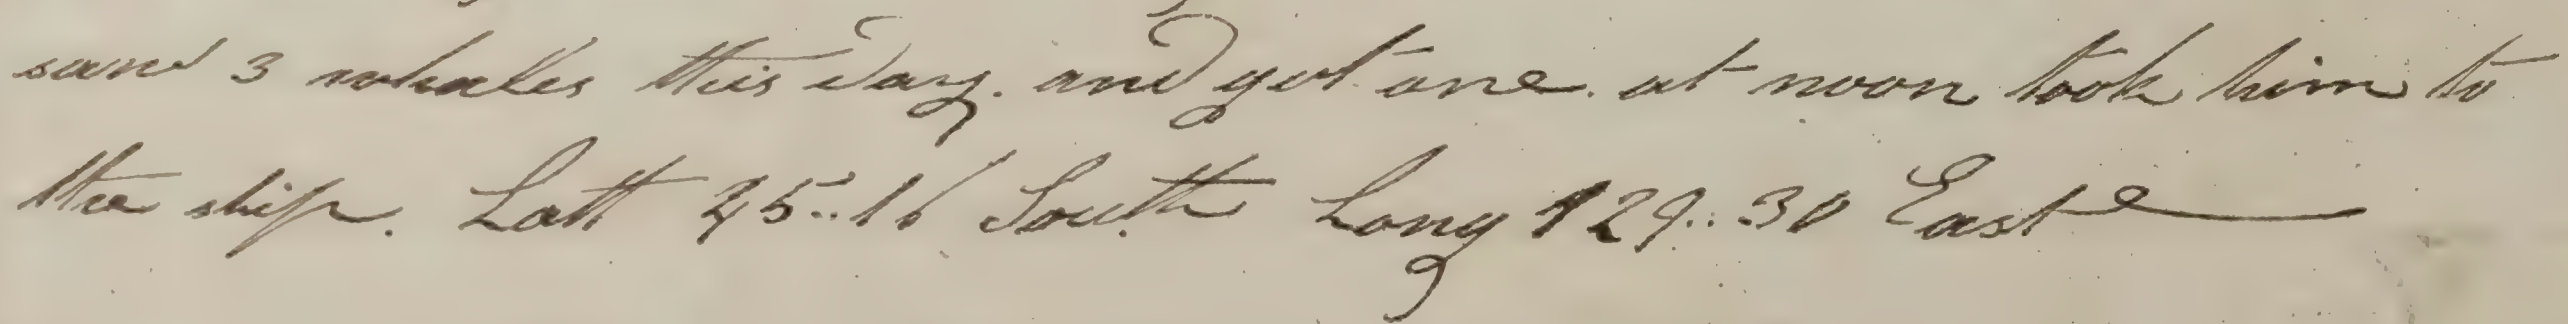 saw 3 whales this day. and got one. at noon took him to
the ship. Latt 35..16 South Long 129..30 East